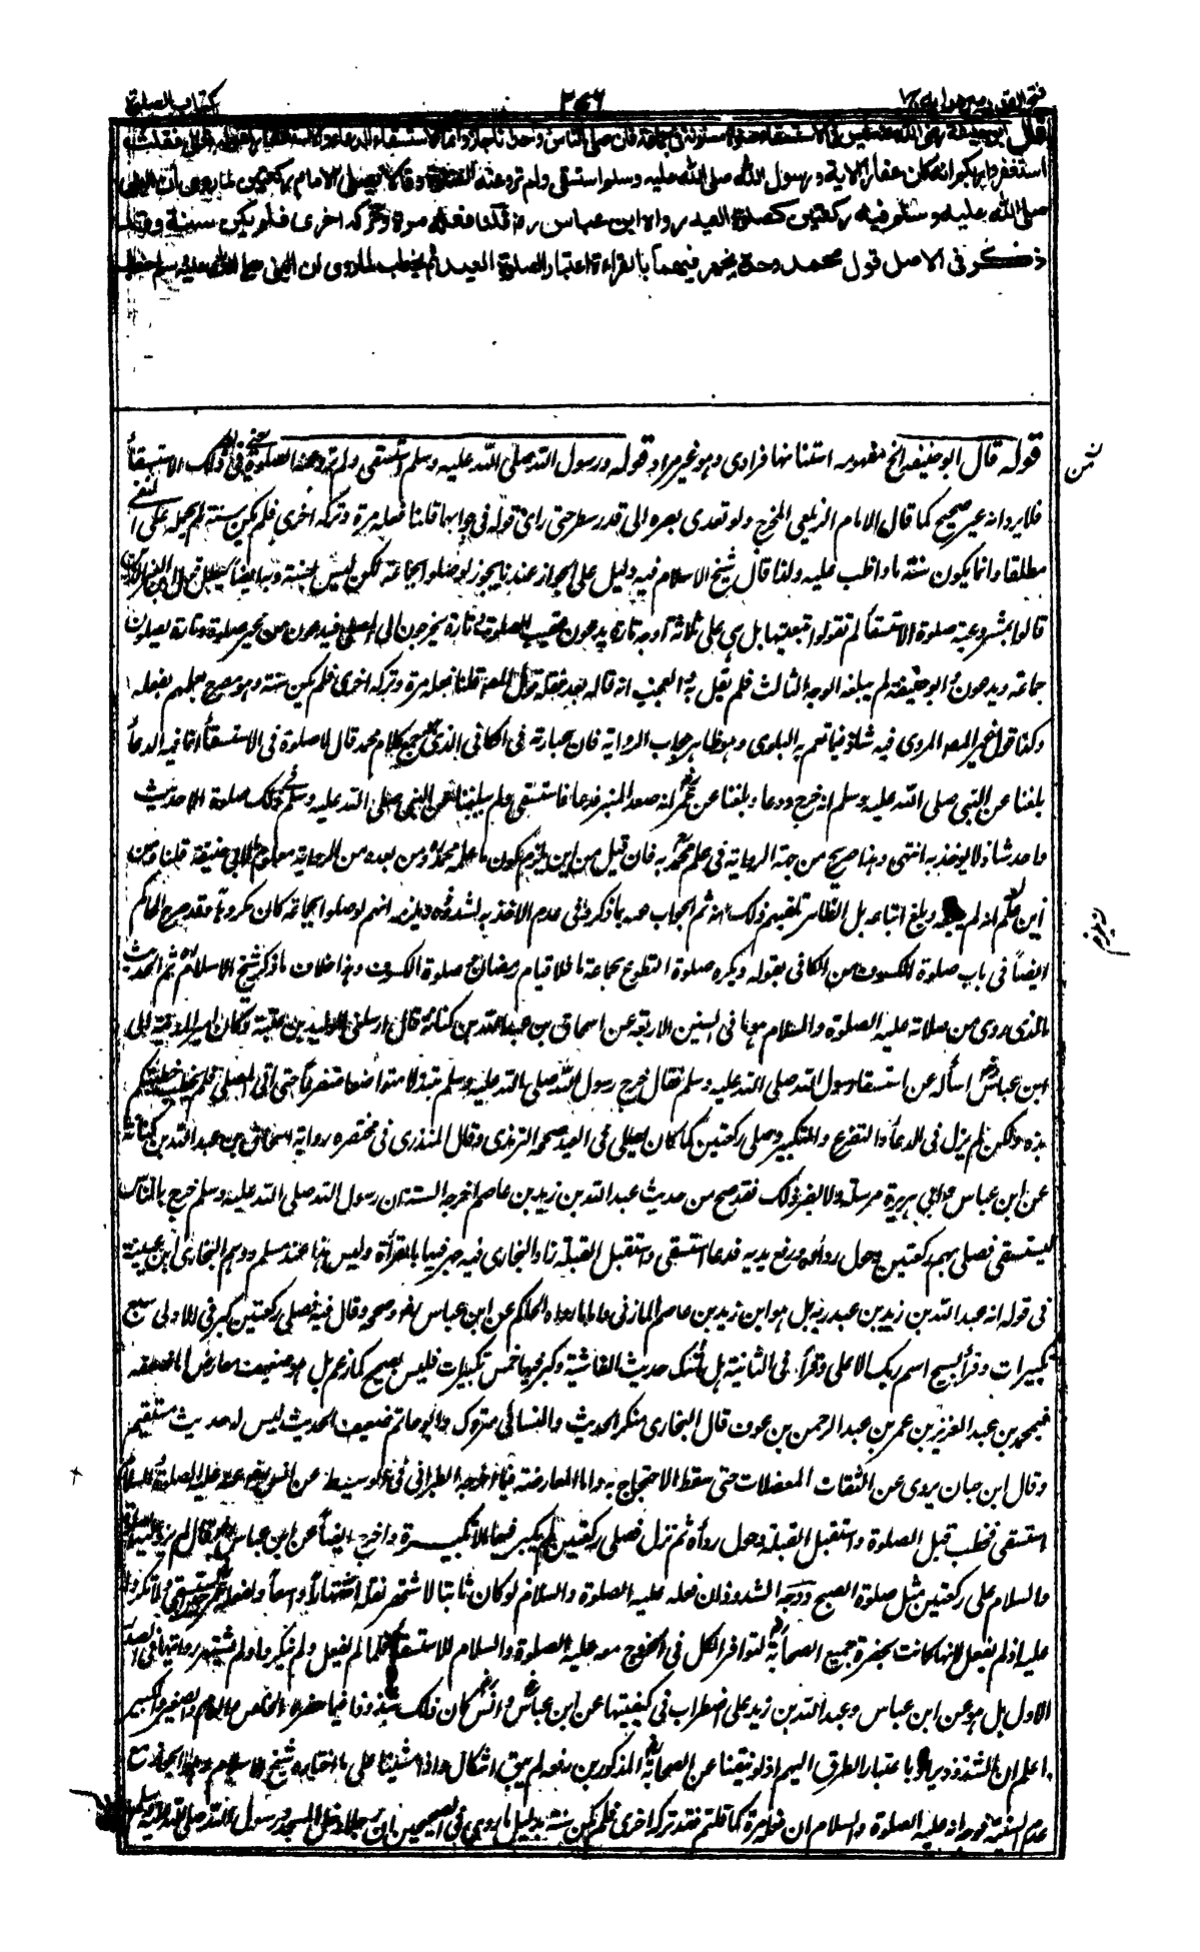 فتح القدير مع هدايه ج ١
٢٥٦
كتاب الصلوة
قال ابو حنيفة رضى الله عنه ليس فى الاستسقاء صلوة مسنونة فى جماعة فان صلى الناس وحدانا جاز وانما الاستسقاء الدعاء والاستغفار لقوله تعالى فقلت
استغفروا ربكم انه كان غفارا الاية ورسول الله صلى الله عليه وسلم استسقى ولم ترو عنه الصلوة وقالا يصلى الامام ركعتين لما روى ان النبى
صلى الله عليه وسلم صلى فيه ركعتين كصلوة العيد رواه ابن عباس رض قلنا فعله مرة وتركه اخرى فلم يكن سنة وقد
ذكر فى الاصل قول محمد وحده ويجهر فيهما بالقراءة اعتبارا بصلوة العيد ثم يخطب لما روى ان النبى صلى الله عليه وسلم خطب
قوله قال ابو حنيفة الخ مفهومه استنانها فرادى وهو غير مراد قوله ورسول الله صلى الله عليه وسلم استسقى ولم ترو عنه الصلوة يعنى فى ذلك الاستسقاء
فلا يرد انه غير صحيح كما قال الامام الزيلعى المخرج ولو تعدى بصره الى قدر سطر حتى راى قوله فى جوابهما قلنا فعله مرة وتركه اخرى فلم يكن سنة لم يحمله على النفى
مطلقا وانما يكون سنة ما واظب عليه ولذا قال شيخ الاسلام فيه دليل على الجواز عندنا يجوز لو صلوا بجماعة لكن ليس بسنة وبه ايضا يبطل قول
قالوا بمشروعية صلوة الاستسقاء لم تقولوا بتعينها بل هى على ثلاثة اوجه تارة يدعون عقيب الصلوة وتارة يخرجون الى المصلى فيدعون من غير صلوة وتارة يصلون
جماعة ويدعون وابو حنيفة لم يبلغه الوجه الثالث فلم يقل به والعجب انه قاله بعد نقله قول المصنف قلنا فعله مرة وتركه اخرى فلم يكن سنة وهو مصرح بعلمهم بفعله
وكذا قول غير المصنف المروى فيه شاذ فيما تعم به البلوى وهو ظاهر جواب الرواية فان عبارته فى الكافى الذى هو جمع كلام محمد قال لا صلوة فى الاستسقاء انما فيه الدعاء
بلغنا عن النبى صلى الله عليه وسلم انه خرج ودعا وبلغنا عن عمر انه صعد المنبر فدعا فاستسقى ولم يبلغنا عن النبى صلى الله عليه وسلم فى ذلك صلوة الا حديث
واحد شاذ لا يؤخذ به انتهى وهذا صريح من جهة الرواية فى علم محمد به فان قيل من اين يلزم كون ما علمه محمد ومن بعده من الرواية معلوما لابى حنيفة قلنا ومن
اين علم انه لم يبلغه وبلغ اتباعه بل الظاهر تلقيهم ذلك عنه ثم الجواب عنه بما ذكر فى عدم الاخذ به لشذوذه ويلزمه انهم لو صلوا بجماعة كان مكروها وقد صرح الحاكم
ايضا فى باب صلوة الكسوف من الكافى بقوله ويكره صلوة التطوع بجماعة ما خلا قيام رمضان وصلوة الكسوف وهذا خلاف ما ذكر شيخ الاسلام ثم الحديث
الذى روى من صلاته عليه الصلوة والسلام هو ما فى السنن الاربعة عن اسحاق بن عبد الله بن كنانة قال ارسلنى الوليد بن عتبة وكان امير المدينة الى
ابن عباس اسأله عن استسقاء رسول الله صلى الله عليه وسلم فقال خرج رسول الله صلى الله عليه وسلم متبذلا متواضعا متضرعا حتى اتى المصلى فلم يخطب خطبتكم
هذه ولكن لم يزل فى الدعاء والتضرع والتكبير وصلى ركعتين كما كان يصلى فى العيد صححه الترمذى وقال المنذرى فى مختصره رواية اسحاق بن عبد الله بن كنانة
عن ابن عباس وابى هريرة مرسلة ولا يضر ذلك فقد صح من حديث عبد الله بن زيد بن عاصم اخرجه الستة ان رسول الله صلى الله عليه وسلم خرج بالناس
يستسقى فصلى بهم ركعتين وحول رداءه ورفع يديه فدعا واستسقى واستقبل القبلة زاد البخارى فيه جهر فيها بالقراءة وليس هذا عند مسلم ووهم البخارى ابن عيينة
فى قوله انه عبد الله بن زيد بن عبد ربه بل هو ابن زيد بن عاصم المازنى واما ما رواه الحاكم عن ابن عباس وصححه وقال فيه فصلى ركعتين كبر فى الاولى سبع
تكبيرات وقرأ سبح اسم ربك الاعلى وقرأ فى الثانية هل اتيك حديث الغاشية وكبر فيها خمس تكبيرات فليس بصحيح كما زعم بل هو ضعيف معارض اما ضعفه
فبمحمد بن عبد العزيز بن عمر بن عبد الرحمن بن عوف قال البخارى منكر الحديث والنسائى متروك وابو حاتم ضعيف الحديث ليس له حديث مستقيم
وقال ابن حبان يروى عن الثقات المعضلات حتى سقط الاحتجاج به واما المعارضة فبما اخرجه الطبرانى فى الاوسط عن انس انه عليه الصلوة والسلام
استسقى فخطب قبل الصلوة واستقبل القبلة وحول رداءه ثم نزل فصلى ركعتين لم يكبر فيهما الا تكبيرة واخرج ايضا عن ابن عباس قال لم يزد عليه الصلوة
والسلام على ركعتين مثل صلوة الصبح ووجه الشذوذ ان فعله عليه الصلوة والسلام لو كان ثابتا لاشتهر نقله اشتهارا واسعا ولفعله عمر حين استسقى ولانكروا
عليه اذ لم يفعل لانها كانت بحضرة جميع الصحابة لتوافر الكل فى الخروج معه عليه الصلوة والسلام للاستسقاء فلما لم يفعل ولم ينكروا ولم تشتهر روايتها فى الصدر
الاول بل هو عن ابن عباس وعبد الله بن زيد على اضطراب فى كيفيتها عن ابن عباس وانس كان ذلك شذوذا فيما حضره الخاص والعام والصغير والكبير
اعلم ان الشذوذ يراد باعتبار الطرق اليهم اذ لو تيقنا عن الصحابة المذكورين رفعه لم يبق اشكال واذا مشينا على ما اختاره شيخ الاسلام وهو الجواز مع
عدم السنية فوجهه انه عليه الصلوة والسلام ان فعله مرة كما قلتم فقد تركه اخرى فلم يكن سنة بدليل ما روى فى الصحيحين ان رجلا دخل المسجد ورسول الله صلى الله عليه وسلم